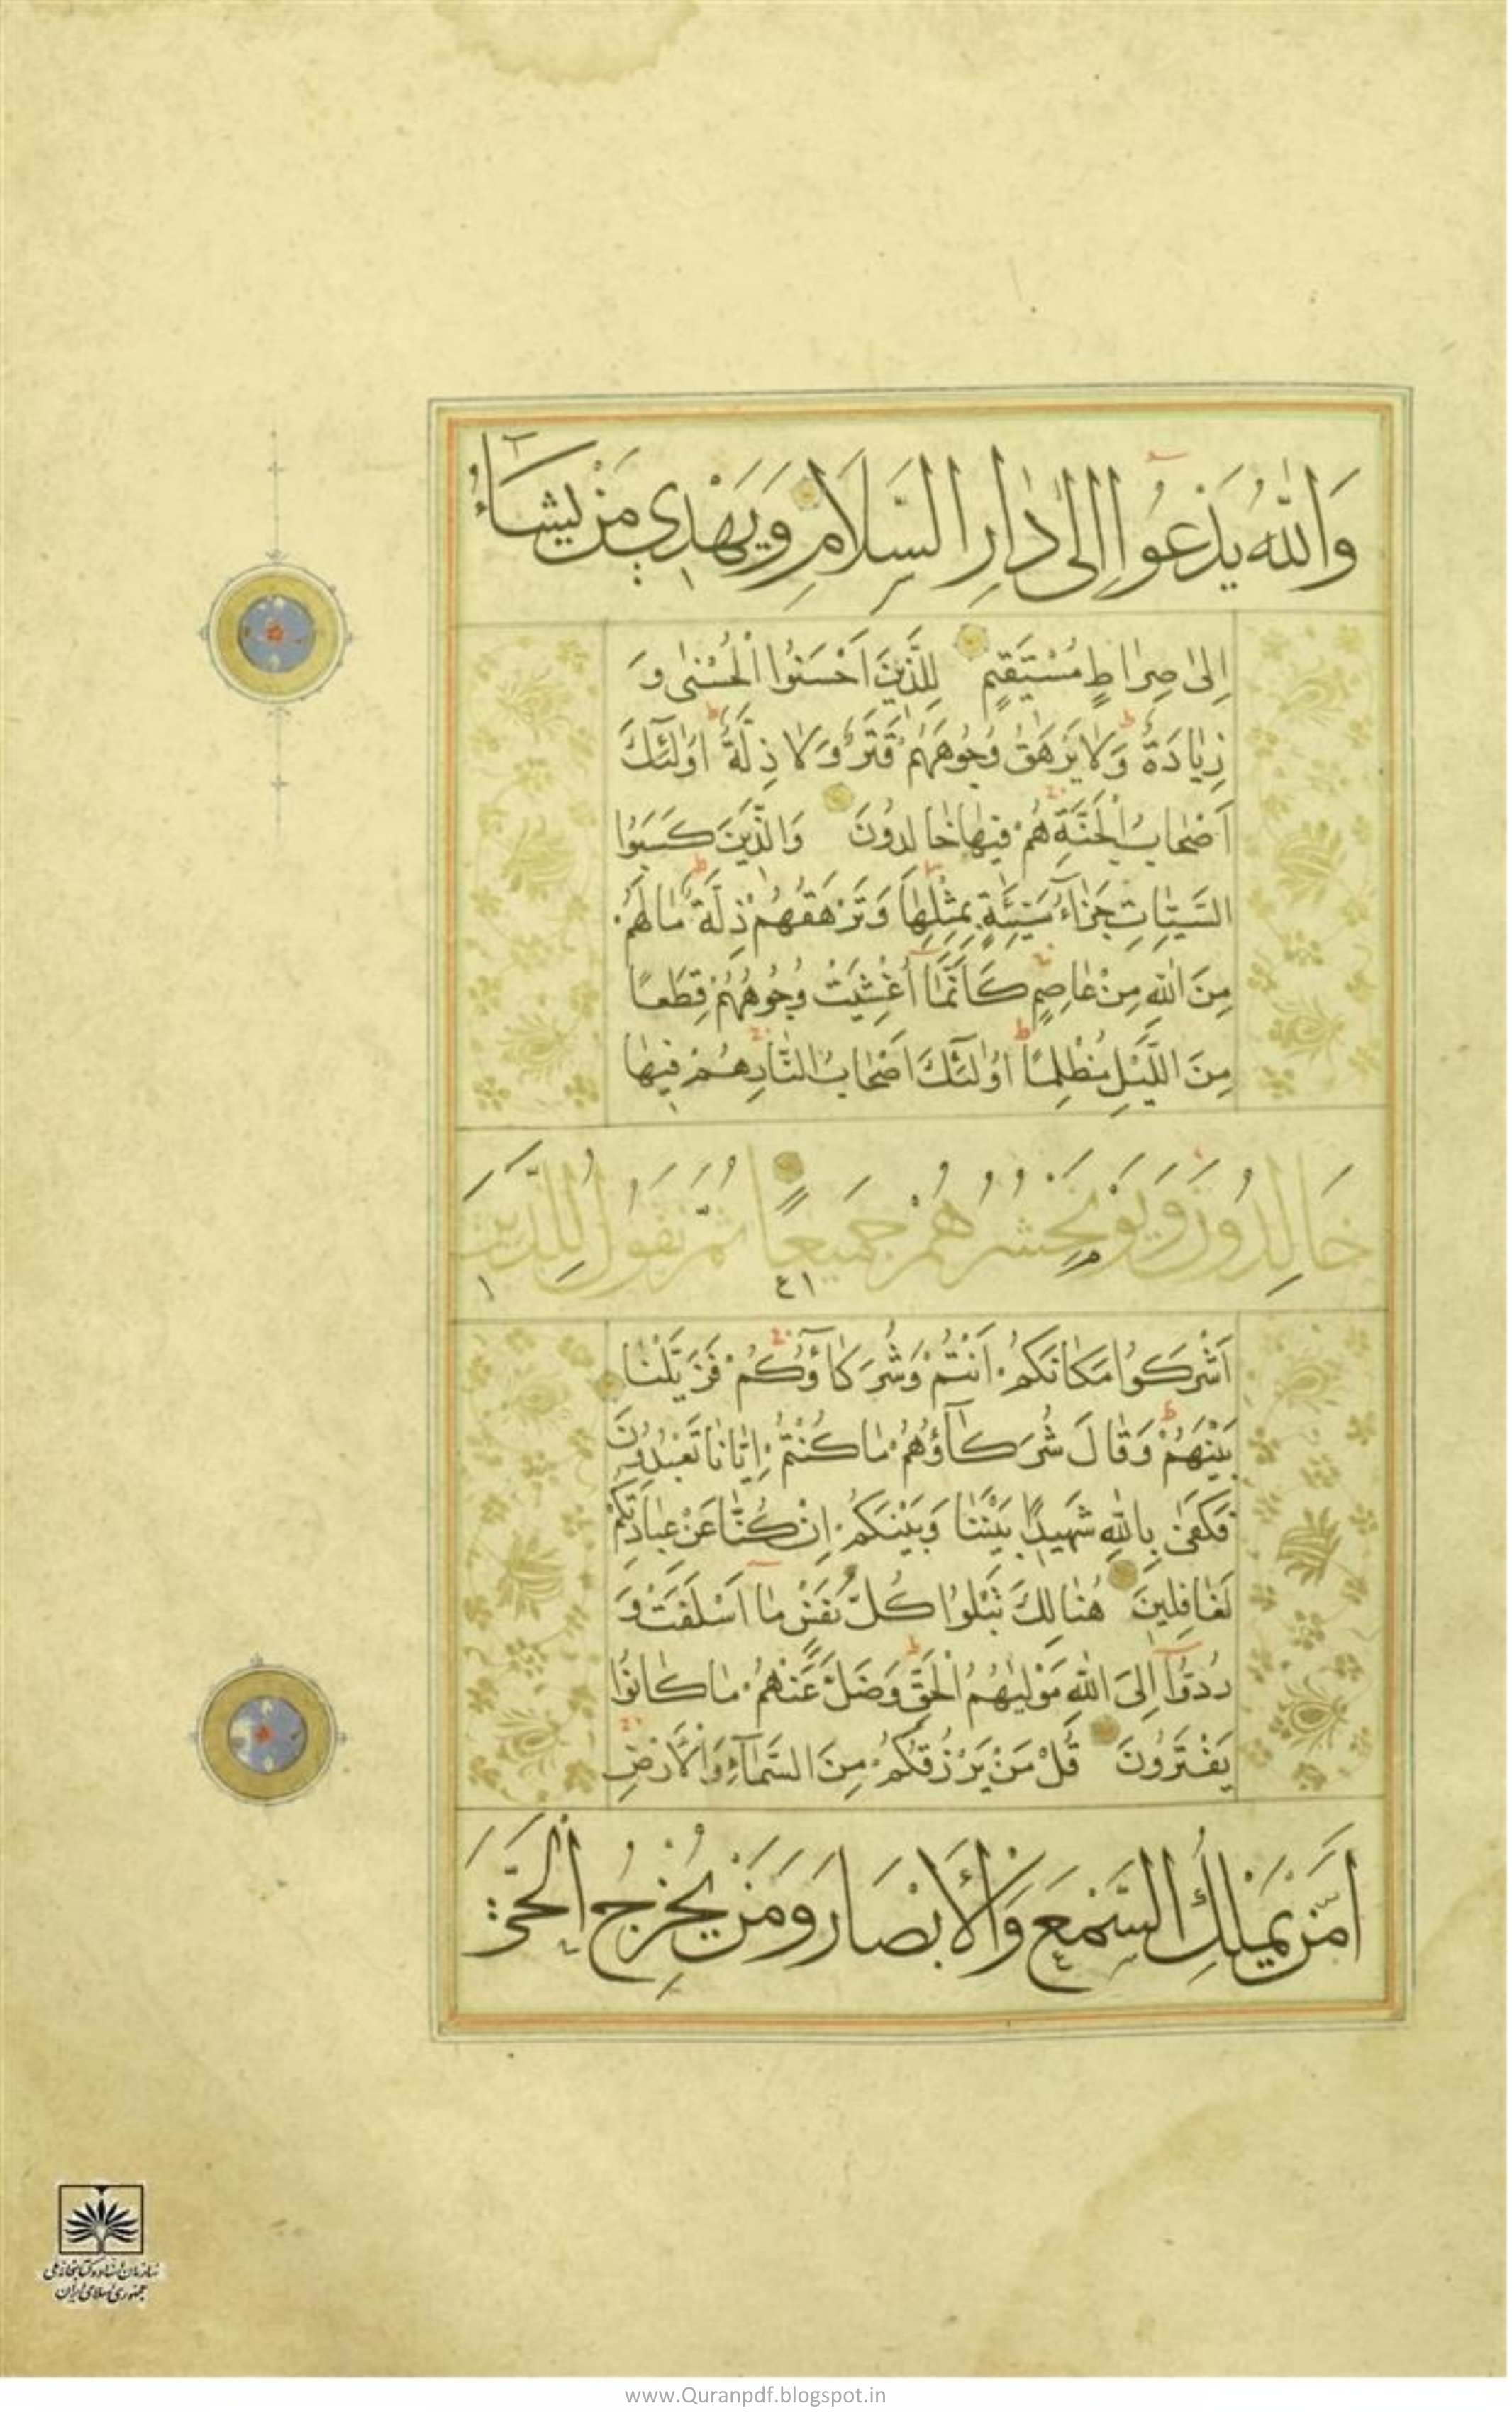 وَاللّٰهُ يَدْعُوا اِلىٰ دٰارِ السَّلاٰمِ وَيَهْدِي مَنْ يَشٰاءُ
اِلىٰ صِرٰاطٍ مُسْتَقٖيمٍ لِلَّذٖينَ اَحْسَنُوا الْحُسْنىٰ وَ
زِيٰادَةٌ وَلاٰ يَرْهَقُ وُجُوهَهُمْ قَتَرٌ وَلاٰ ذِلَّةٌ اُولٰئِكَ
اَصْحٰابُ الْجَنَّةِ هُمْ فٖيهٰا خٰالِدُونَ وَالَّذٖينَ كَسَبُوا
السَّيِّئٰاتِ جَزٰاءُ سَيِّئَةٍ بِمِثْلِهٰا وَتَرْهَقُهُمْ ذِلَّةٌ مٰا لَهُمْ
مِنَ اللّٰهِ مِنْ عٰاصِمٍ كَاَنَّمٰا اُغْشِيَتْ وُجُوهُهُمْ قِطَعًا
مِنَ اللَّيْلِ مُظْلِمًا اُولٰئِكَ اَصْحٰابُ النّٰارِ هُمْ فٖيهٰا
خَالِدُونَ وَيَوْمَ نَحْشُرُهُمْ جَمِيعًا ثُمَّ نَقُولُ لِلَّذِينَ
اَشْرَكُوا مَكٰانَكُمْ اَنْتُمْ وَشُرَكٰاؤُكُمْ فَزَيَّلْنٰا
بَيْنَهُمْ وَقٰالَ شُرَكٰاؤُهُمْ مٰا كُنْتُمْ اِيّٰانٰا تَعْبُدُونَ
فَكَفىٰ بِاللّٰهِ شَهٖيدًا بَيْنَنٰا وَبَيْنَكُمْ اِنْ كُنّٰا عَنْ عِبٰادَتِكُمْ
لَغٰافِلٖينَ هُنٰالِكَ تَبْلُوا كُلُّ نَفْسٍ مٰا اَسْلَفَتْ وَ
رُدُّوا اِلَى اللّٰهِ مَوْلٰيهُمُ الْحَقِّ وَضَلَّ عَنْهُمْ مٰا كٰانُوا
يَفْتَرُونَ قُلْ مَنْ يَرْزُقُكُمْ مِنَ السَّمٰاءِ وَالْاَرْضِ
اَمَّنْ يَمْلِكُ السَّمْعَ وَالْاَبْصَارَ وَمَنْ يُخْرِجُ الْحَيَّ
سازمان اسناد و کتابخانه ملی
جمهوری اسلامی ایران
www.Quranpdf.blogspot.in